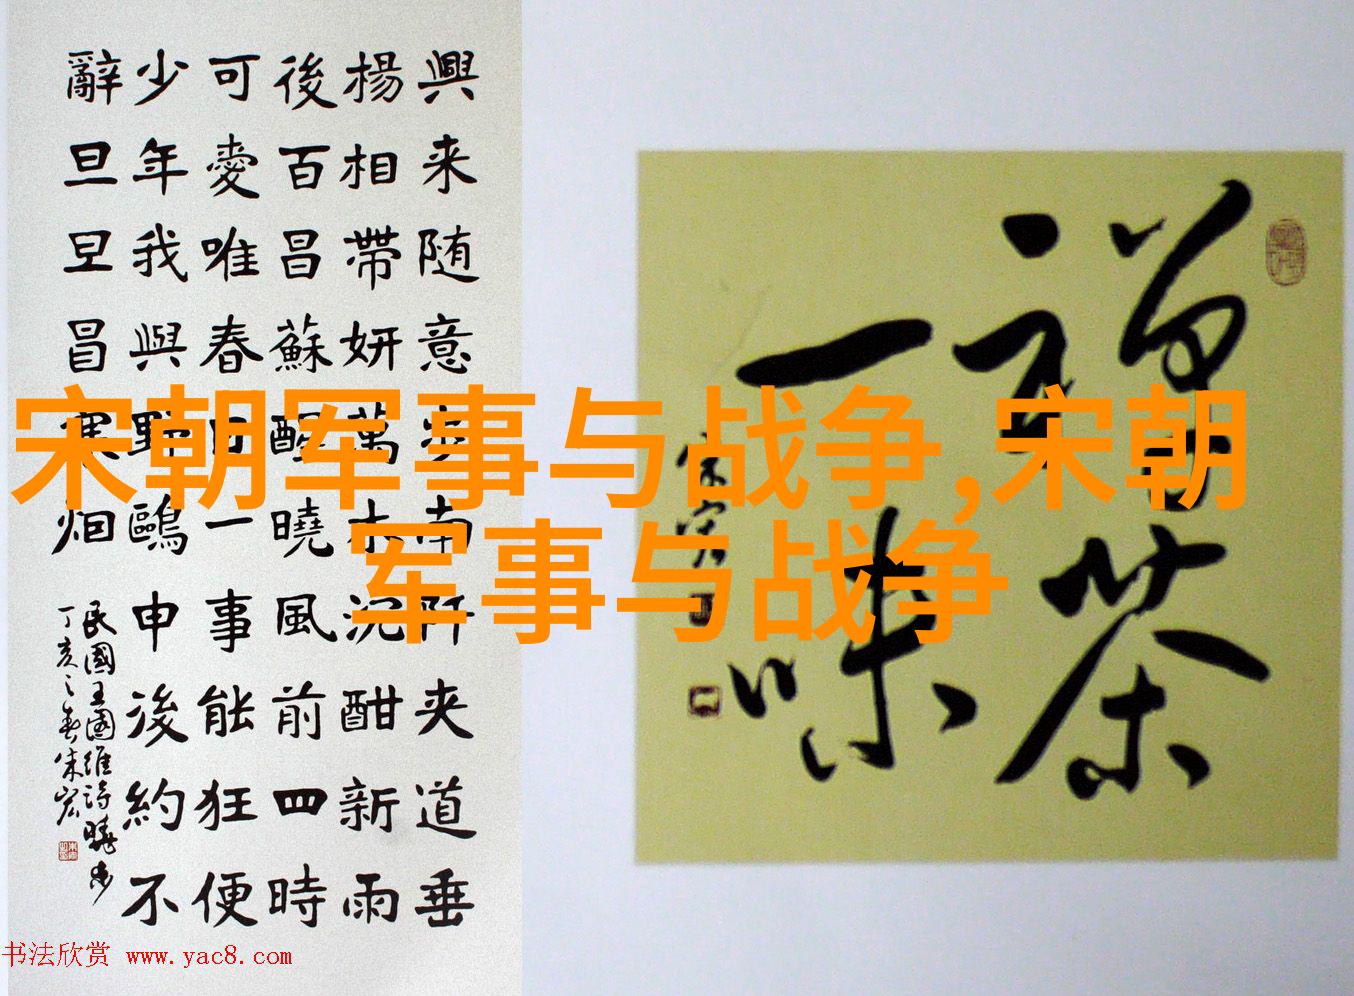 興来随意步南阡夹道垂
楊相帶妍萬木沉酣新雨
後百昌蘇醒曉風前四時
可愛唯春日一事能狂便
少年我與野鷗申後約不
辭旦旦冒寒烟
民國王國維詩曉步
丁亥之春朱宏
禅茶
一味
朱宏
宋朝军事与战争,宋朝
军事与战争
书法欣赏 www.yac8.com